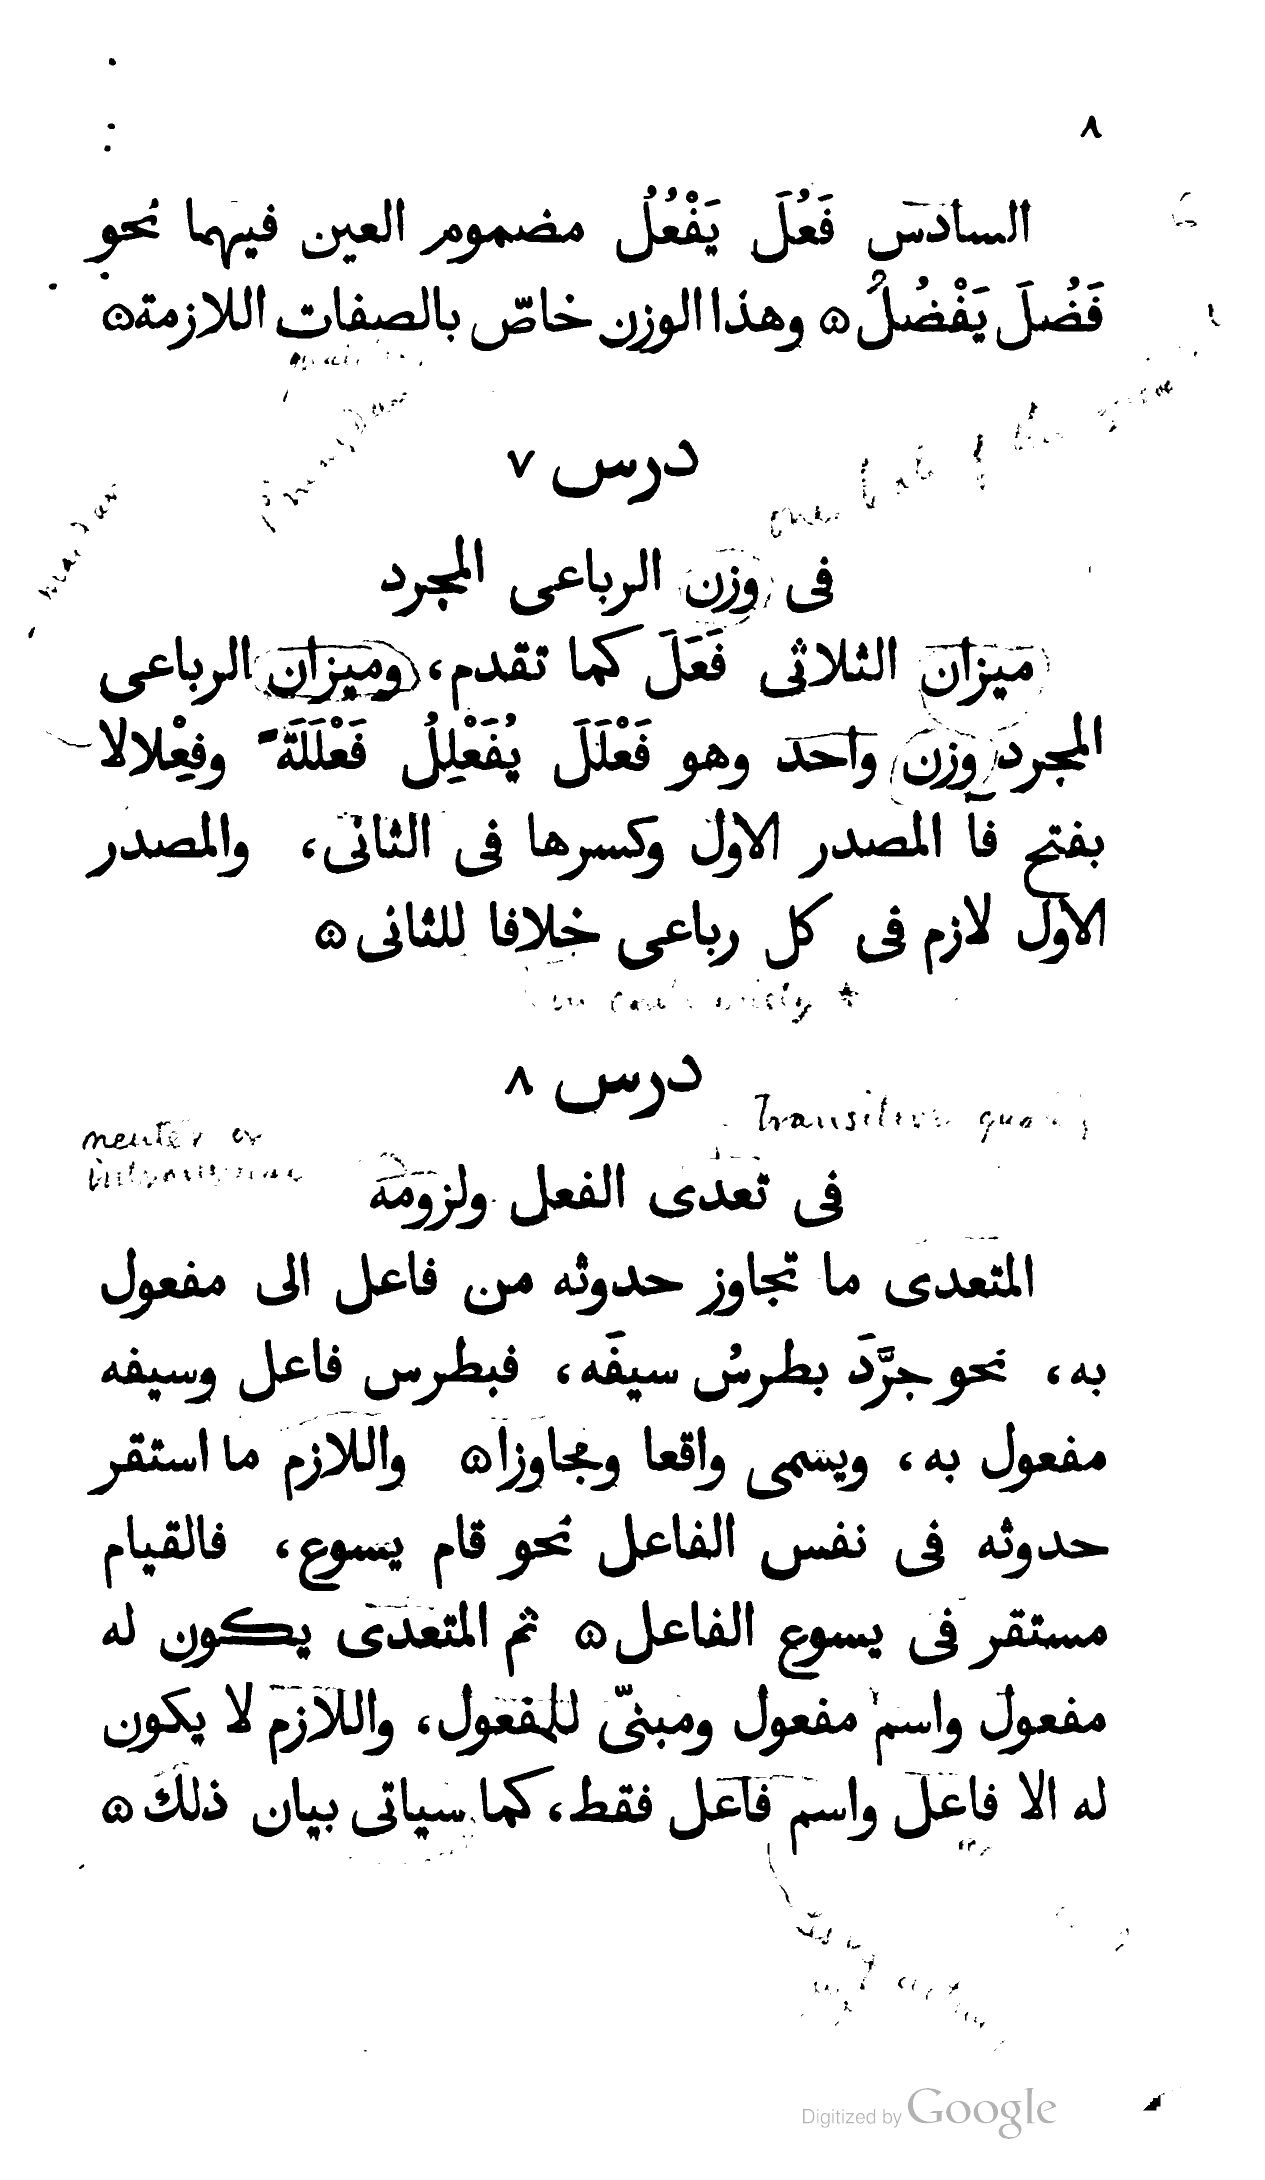 ٨
السادس فَعُلَ يَفْعُلُ مضموم العين فيهما نحو
فَضُلَ يَفْضُلُ ۞ وهذا الوزن خاصّ بالصفات اللازمة ۞
درس ٧
فى وزن الرباعى المجرد
ميزان الثلاثى فَعَلَ كما تقدم، وميزان الرباعى
المجرد وزن واحد وهو فَعْلَلَ يُفَعْلِلُ فَعْلَلَةً وفِعْلالا
بفتح فآ المصدر الاول وكسرها فى الثانى، والمصدر
الاول لازم فى كل رباعى خلافا للثانى ۞
درس ٨
Transitive
neuter or
فى تعدى الفعل ولزومه
المتعدى ما تجاوز حدوثه من فاعل الى مفعول
به، نحو جرَّدَ بطرسُ سيفَه، فبطرس فاعل وسيفه
مفعول به، ويسمى واقعا ومجاوزا ۞ واللازم ما استقر
حدوثه فى نفس الفاعل نحو قام يسوع، فالقيام
مستقر فى يسوع الفاعل ۞ ثم المتعدى يكون له
مفعول واسم مفعول ومبنىّ للمفعول، واللازم لا يكون
له الا فاعل واسم فاعل فقط، كما سياتى بيان ذلك ۞
Digitized by Google